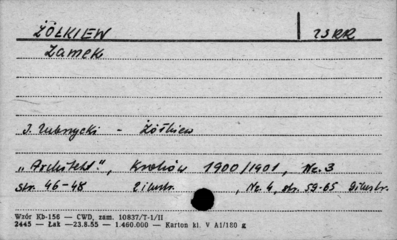 ŻÓŁKIEW
ZSRR
Zamek
J. Zubrzycki - Żółkiew
„Architekt", Kraków 1900/1901, Nr. 3
str. 46-48 Ilustr. , Nr. 4, str. 59-65 Ilustr.
Wzór Kb-156 — CWD, zam. 10837/T-1/II
2445 — Łak —23.8.55 — 1.460.000 — Karton kl. V A1/180 g